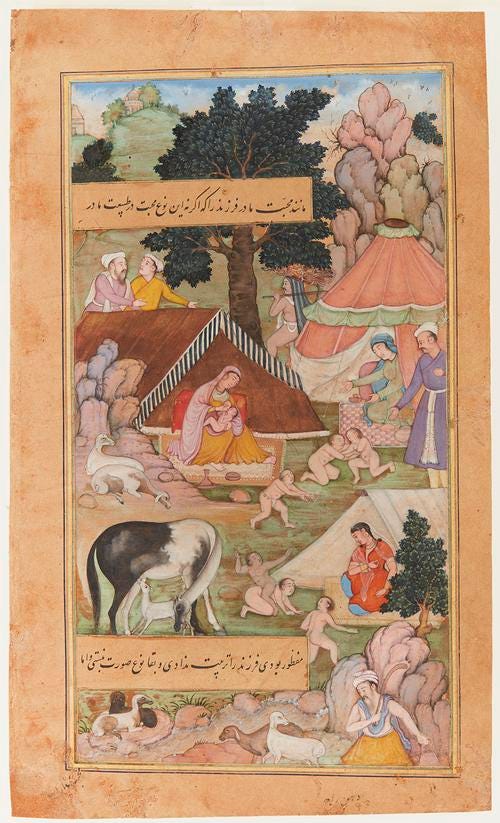 مانند محبّت مادر فرزند را که اگر نه این نوع محبت در طبیعت مادر
مفطور بودی فرزند را تربیت ندادی و بقا نوع صورت نبستی و اما